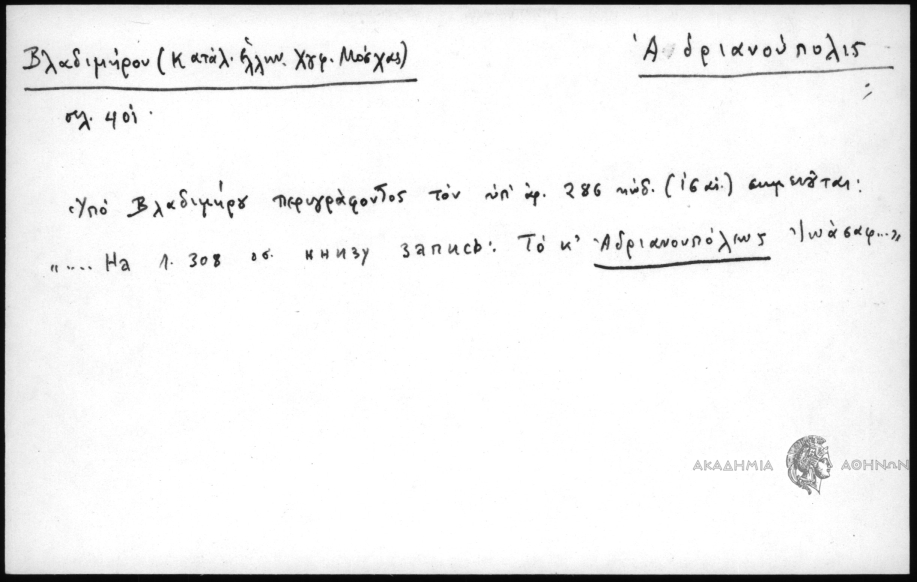 Βλαδιμήρου (Κατάλ. ἑλλην. Χγρ. Μόσχας)
Ἀδριανούπολις
σελ. 401.
Ὑπό Βλαδιμήρου περιγράφοντος τόν ὑπ' ἀρ. 286 κώδ. ( αἰ.) σημειοῦται:
".... На л. 308 об. книзу запись: Τό κ' Ἀδριανουπόλεως Ἰωάσαφ..."
ΑΚΑΔΗΜΙΑ ΑΘΗΝΩΝ